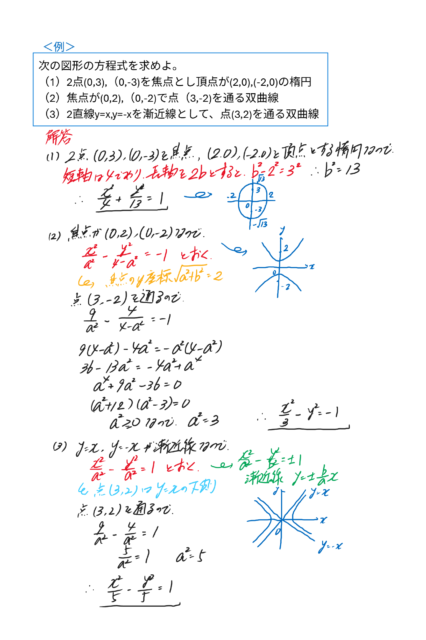 ＜例＞
次の図形の方程式を求めよ。
（1）2点(0,3)，(0,-3)を焦点とし頂点が(2,0),(-2,0)の楕円
（2）焦点が(0,2)，(0,-2)で点（3,-2)を通る双曲線
（3）2直線y=x,y=-xを漸近線として、点(3,2)を通る双曲線
解答
(1) 2点(0,3),(0,-3)を焦点，(2,0),(-2,0)を頂点とする楕円なので.
短軸は4であり、長軸を2bとすると. b²-2²=3² ∴b²=13
∴ x²/4 + y²/13 = 1
√13
-2 0 3 2
-3
-√13
(2) 焦点が(0,2),(0,-2)なので.
x²/a² - y²/(4-a²) = -1 とおく.
焦点のy座標√(a²+b²)=2
y
2
0 x
-2
点(3,-2)を通るので
9/a² - 4/(4-a²) = -1
9(4-a²)-4a²=-a²(4-a²)
36-13a²=-4a²+a⁴
a⁴+9a²-36=0
(a²+12)(a²-3)=0
a²≧0なので. a²=3
∴ x²/3 - y² = -1
(3) y=x, y=-xが漸近線なので.
x²/a² - y²/a² = 1 とおく.
x²/a² - y²/b² = ±1
漸近線 y=±b/a x
(点(3,2)はy=xの下側)
点(3,2)を通るので.
9/a² - 4/a² = 1
5/a² = 1 a²=5
∴ x²/5 - y²/5 = 1
y y=x
0 x
y=-x